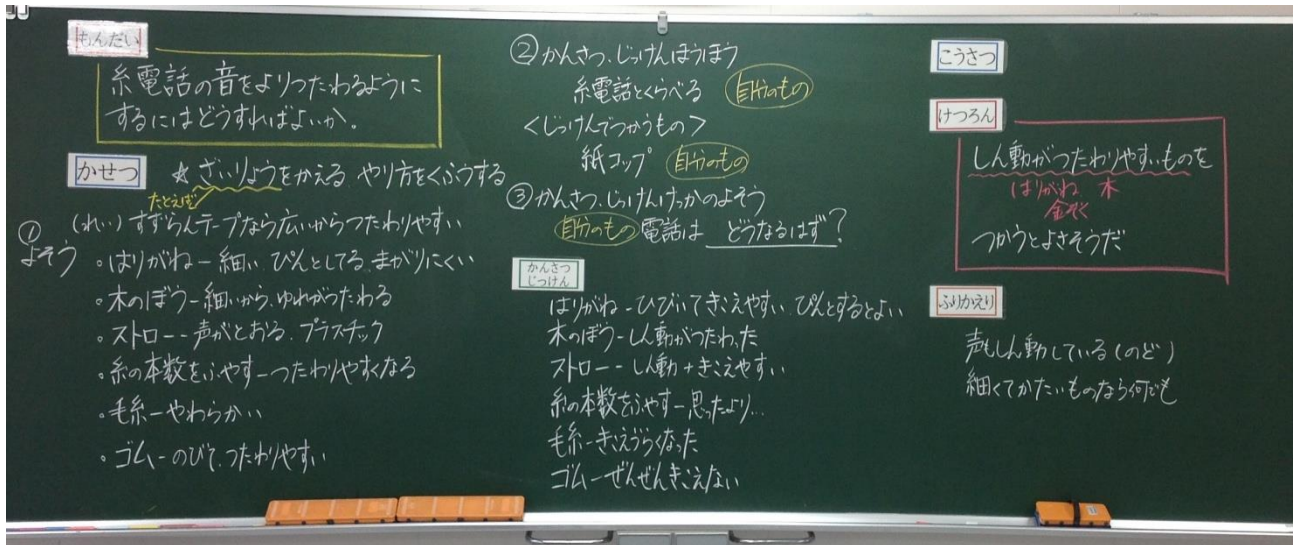 もんだい
糸電話の音をよりつたわるように
するにはどうすればよいか。
かせつ
☆ざいりょうをかえる やり方をくふうする
たとえば
①
よそう
(れい)すずらんテープなら広いからつたわりやすい
・はりがね－細い ぴんとしてる まがりにくい
・木のぼう－細いから、ゆれがつたわる
・ストロー－声がとおる、プラスチック
・糸の本数をふやす－つたわりやすくなる
・毛糸－やわらかい
・ゴム－のびて、つたわりやすい
②かんさつ、じっけんほうほう
糸電話とくらべる 自分のもの
＜じっけんでつかうもの＞
紙コップ 自分のもの
③かんさつ、じっけんけっかのよそう
自分のもの 電話は どうなるはず?
かんさつ
じっけん
はりがね－ひびいてきこえやすい ぴんとするとよい
木のぼう－しん動がつたわった
ストロー－しん動+きこえやすい
糸の本数をふやす－思ったより…
毛糸－きこえづらくなった
ゴム－ぜんぜんきこえない
こうさつ
けつろん
しん動がつたわりやすいものを
はりがね 木
金ぞく
つかうとよさそうだ
ふりかえり
声もしん動している(のど)
細くてかたいものなら何でも